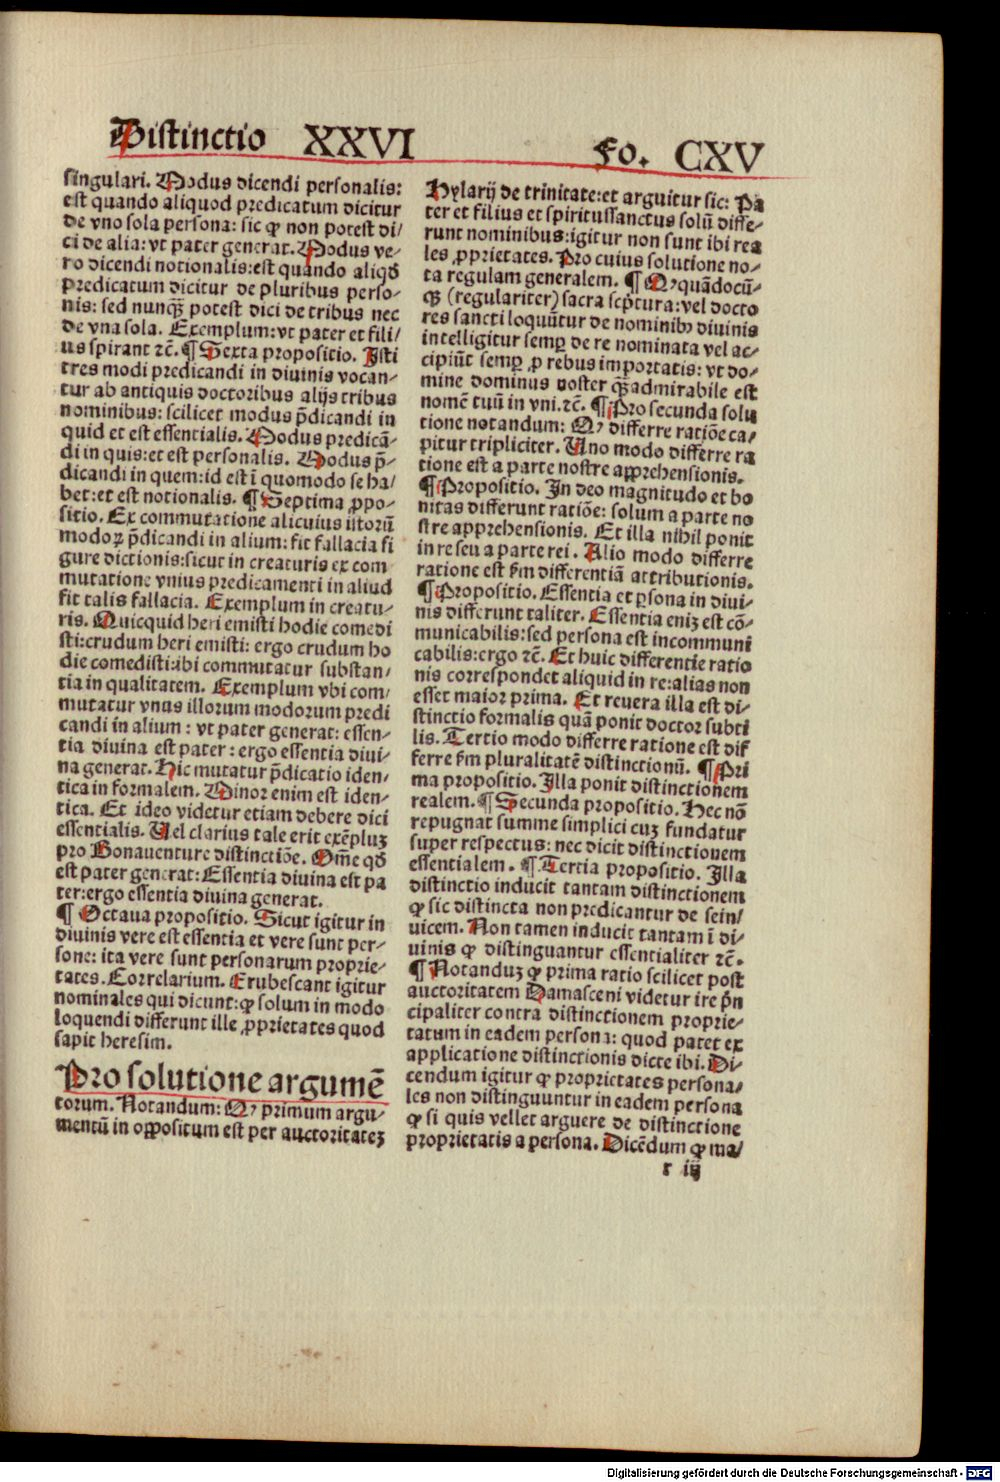 Distinctio XXVI Fo. CXV
singulari. Modus dicendi personalis:
est quando aliquod predicatum dicitur
de vno sola persona: sic ꝙ non potest di/
ci de alia: vt pater generat. Modus ve-
ro dicendi notionalis: est quando aliqđ
predicatum dicitur de pluribus perso-
nis: sed nunqꝫ̄ potest dici de tribus nec
de vna sola. Exemplum: vt pater et fili/
us spirant ⁊c̄. ¶ Sexta propositio. Isti
tres modi predicandi in diuinis vocan-
tur ab antiquis doctoribus alijs tribus
nominibus: scilicet modus p̄dicandi in
quid et est essentialis. Modus predicā-
di in quis: et est personalis. Modus p̄-
dicandi in quem: id est ī quomodo se ha/
bet: et est notionalis. ¶ Septima ꝓpo-
sitio. Ex commutatione alicuius istorū
modoꝝ p̄dicandi in alium: fit fallacia fi
gure dictionis: sicut in creaturis ex com
mutatione vnius predicamenti in aliud
fit talis fallacia. Exemplum in creatu-
ris. Quicquid heri emisti hodie comedi
sti: crudum heri emisti: ergo crudum ho
die comedisti: ibi commutatur substan-
tia in qualitatem. Exemplum vbi com/
mutatur vnus illorum modorum predi
candi in alium: vt pater generat: essen-
tia diuina est pater: ergo essentia diui-
na generat. Hic mutatur p̄dicatio iden-
tica in formalem. Minor enim est iden-
tica. Et ideo videtur etiam debere dici
essentialis. Uel clarius tale erit exēpluꝫ
pro Bonauenture distinctiōe. Om̄e qđ
est pater generat: Essentia diuina est pa
ter: ergo essentia diuina generat.
¶ Octaua propositio. Sicut igitur in
diuinis vere est essentia et vere sunt per-
sone: ita vere sunt personarum proprie-
tates. Correlarium. Erubescant igitur
nominales qui dicunt: ꝙ solum in modo
loquendi differunt ille ꝓprietates quod
sapit heresim.
Pro solutione argumē
torum. Notandum: Qꝫ primum argu-
mentū in oppositum est per auctoritateꝫ
Hylarij de trinitate: et arguitur sic: Pa
ter et filius et spiritussanctus solū diffe-
runt nominibus: igitur non sunt ibi rea
les ꝓprietates. Pro cuius solutione no-
ta regulam generalem. ¶ Qꝫ quādocū-
qꝫ (regulariter) sacra scp̄tura: vel docto
res sancti loquūtur de nominibꝫ diuinis
intelligitur semꝑ de re nominata vel ac-
cipiūt semꝑ ꝓ rebus importatis: vt do-
mine dominus noster qꝫ̄ admirabile est
nomē tuū in vni. ⁊c̄. ¶ Pro secunda solu
tione notandum: Qꝫ differre ratiōe ca-
pitur tripliciter. Uno modo differre ra
tione est a parte nostre apprehensionis.
¶ Propositio. In deo magnitudo et bo
nitas differunt ratiōe: solum a parte no
stre apprehensionis. Et illa nihil ponit
in re seu a parte rei. Alio modo differre
ratione est ẜm differentiā attributionis.
¶ Propositio. Essentia et ꝑsona in diui-
nis differunt taliter. Essentia eniꝫ est cō-
municabilis: sed persona est incommuni
cabilis: ergo ⁊c̄. Et huic differentie ratio
nis correspondet aliquid in re: alias non
esset maior prima. Et reuera illa est di-
stinctio formalis quā ponit doctor subti
lis. Tertio modo differre ratione est dif
ferre ẜm pluralitatē distinctionū. ¶ Pri
ma propositio. Illa ponit distinctionem
realem. ¶ Secunda propositio. Hec nō
repugnat summe simplici cuꝫ fundatur
super respectus: nec dicit distinctionem
essentialem. ¶ Tertia propositio. Illa
distinctio inducit tantam distinctionem
ꝙ sic distincta non predicantur de sein/
uicem. Non tamen inducit tantam ī di-
uinis ꝙ distinguantur essentialiter ⁊c̄.
¶ Notanduꝫ ꝙ prima ratio scilicet post
auctoritatem Damasceni videtur ire p̄n
cipaliter contra distinctionem proprie-
tatum in eadem persona: quod patet ex
applicatione distinctionis dicte ibi. Di-
cendum igitur ꝙ proprietates persona/
les non distinguuntur in eadem persona
ꝙ si quis vellet arguere de distinctione
proprietatis a persona. Dicēdum ꝙ ma/
r iij
Digitalisierung gefördert durch die Deutsche Forschungsgemeinschaft - DFG